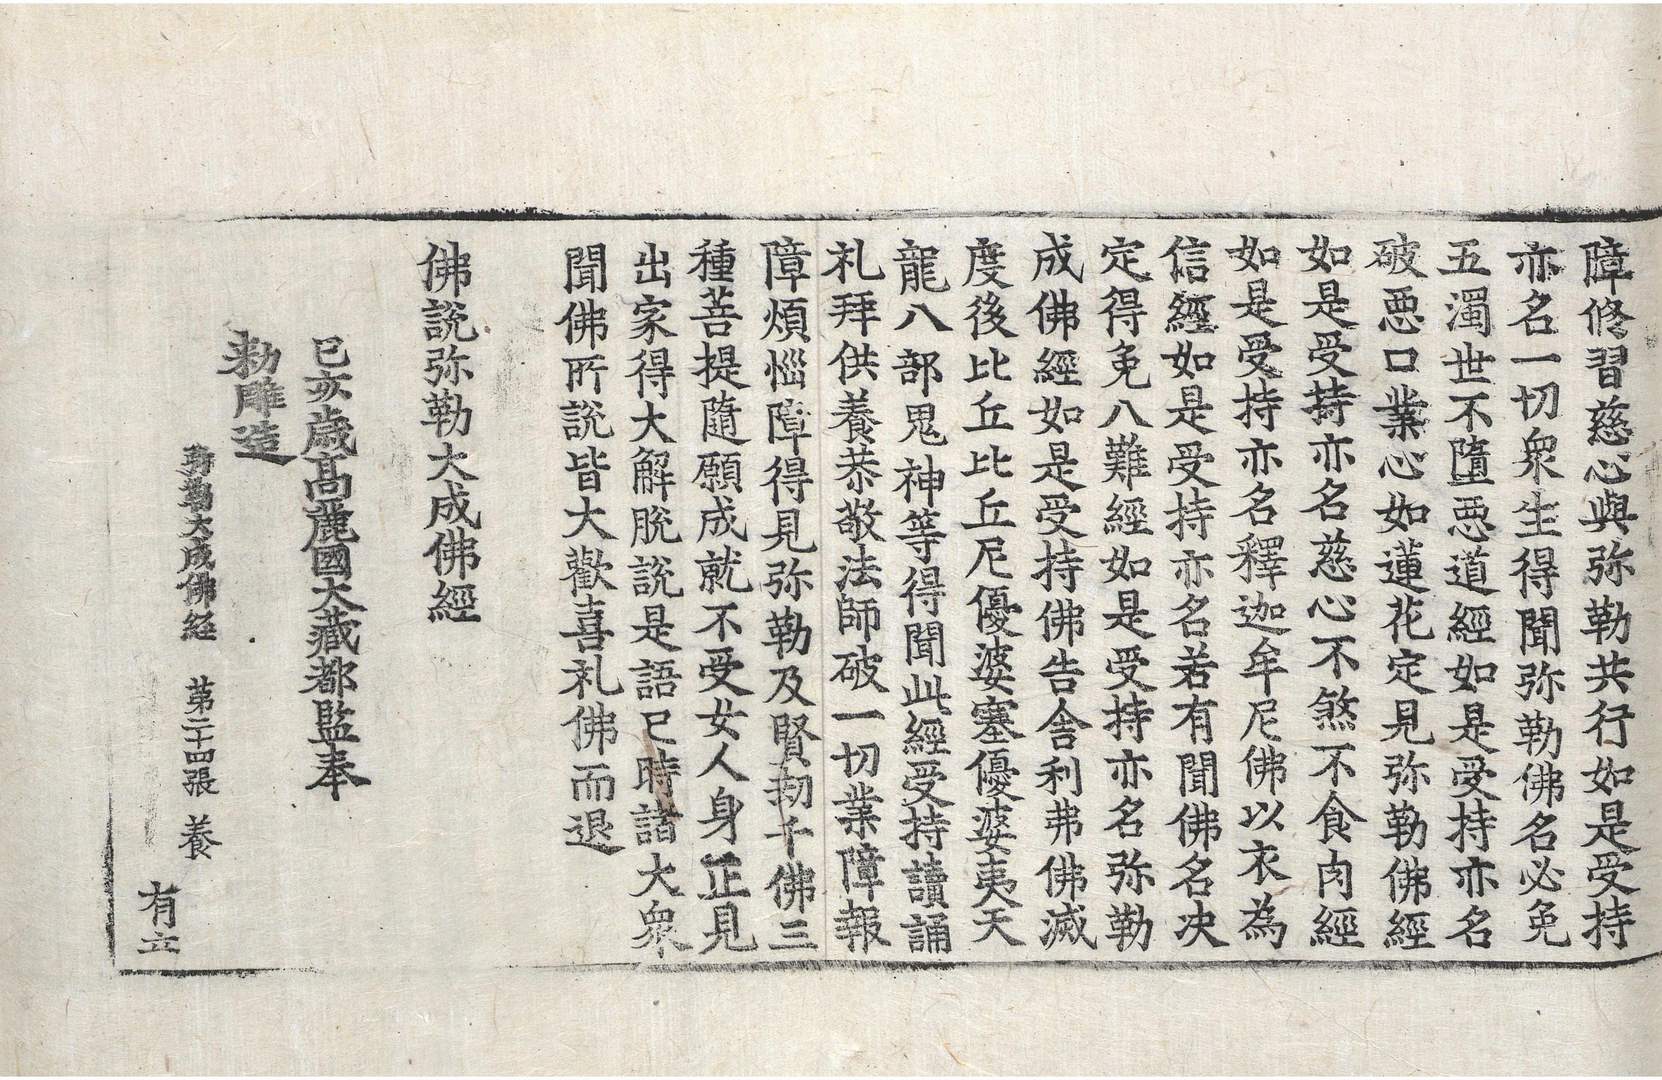 障修習慈心與弥勒共行如是受持
亦名一切衆生得聞弥勒佛名必免
五濁世不墮惡道經如是受持亦名
破惡口業心如蓮花定見弥勒佛經
如是受持亦名慈心不煞不食肉經
如是受持亦名釋迦牟尼佛以衣為
信經如是受持亦名若有聞佛名决
定得免八難經如是受持亦名弥勒
成佛經如是受持佛告舍利弗佛滅
度後比丘比丘尼優婆塞優婆夷天
龍八部鬼神等得聞此經受持讀誦
礼拜供養恭敬法師破一切業障報
障煩惱障得見弥勒及賢劫千佛三
種菩提隨願成就不受女人身正見
出家得大解脫說是語已時諸大衆
聞佛所說皆大歡喜礼佛而退
佛說弥勒大成佛經
己亥歲髙麗國大藏都監奉
勅雕造
弥勒大成佛経 第二十四張 養
有立